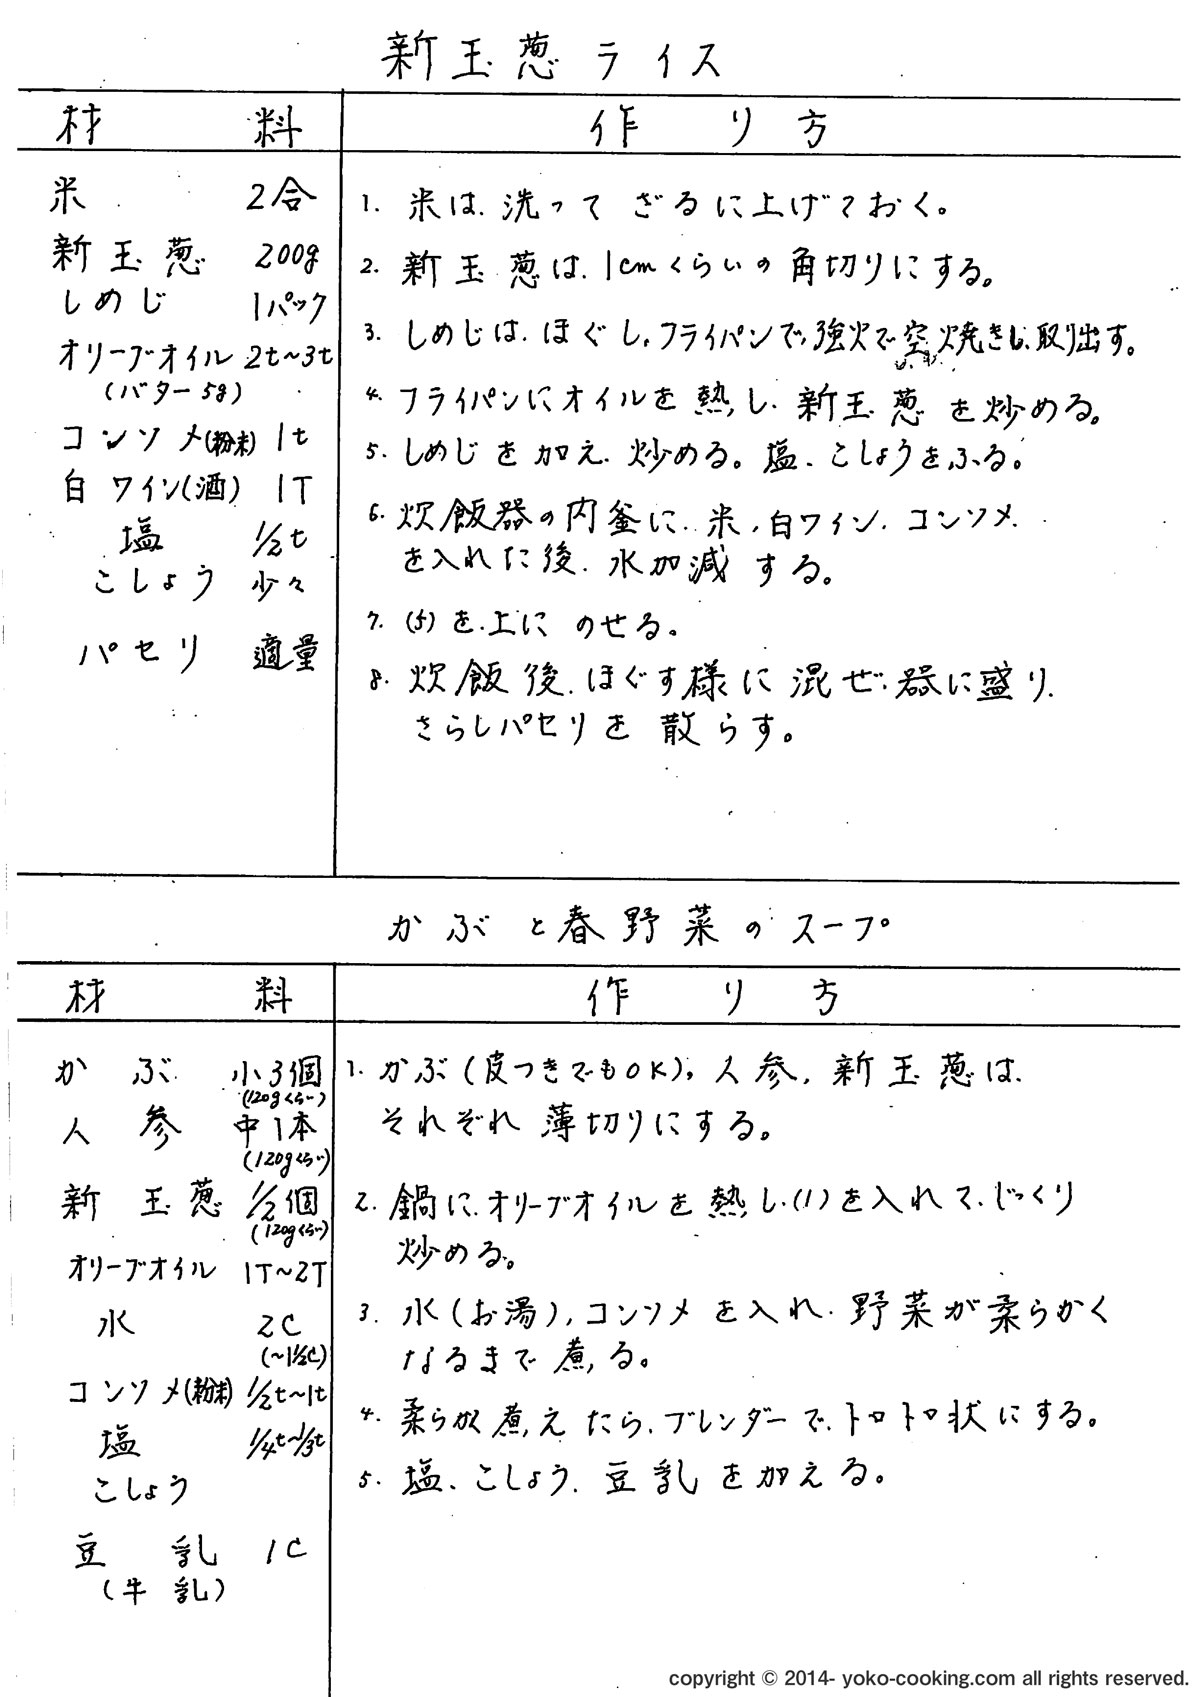 新玉葱ライス
材料
作り方
米 2合
新玉葱 200g
しめじ 1パック
オリーブオイル 2t~3t
(バター5g)
コンソメ(粉末) 1t
白ワイン(酒) 1T
塩 1/2t
こしょう 少々
パセリ 適量
1. 米は、洗って ざるに上げておく。
2. 新玉葱は、1cmくらいの角切りにする。
3. しめじは、ほぐし、フライパンで、強火で空焼きし、取り出す。
4. フライパンにオイルを熱し、新玉葱を炒める。
5. しめじを加え、炒める。塩、こしょうをふる。
6. 炊飯器の内釜に、米、白ワイン、コンソメ、
を入れた後、水加減する。
7. (5)を、上に のせる。
8. 炊飯後、ほぐす様に混ぜ、器に盛り、
さらしパセリを散らす。
かぶと春野菜のスープ
材料
作り方
かぶ 小3個
(120gくらい)
人参 中1本
(120gくらい)
新玉葱 1/2個
(120gくらい)
オリーブオイル 1T~2T
水 2C
(~1 1/2C)
コンソメ(粉末) 1/2t~1t
塩 1/4t~1/3t
こしょう
豆乳 1C
(牛乳)
1. かぶ(皮つきでもOK)、人参、新玉葱は、
それぞれ薄切りにする。
2. 鍋に、オリーブオイルを熱し、(1)を入れて、じっくり
炒める。
3. 水(お湯)、コンソメを入れ、野菜が柔らかく
なるまで煮る。
4. 柔らかく煮えたら、ブレンダーで、トロトロ状にする。
5. 塩、こしょう、豆乳を加える。
copyright © 2014- yoko-cooking.com all rights reserved.